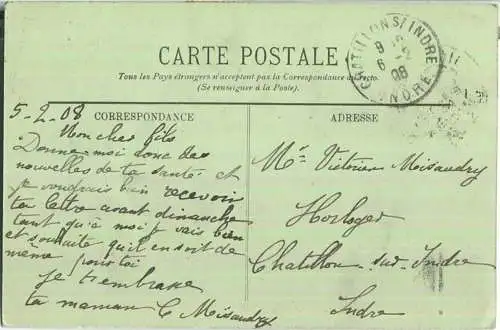 CARTE POSTALE
Tous les Pays étrangers n'acceptent pas la Correspondance au recto.
(Se renseigner à la Poste).
CHATILLON S/ INDRE
9
6 -2
08
INDRE
CORRESPONDANCE
5-2.08
Mon cher fils
Donne moi donc des
nouvelles de ta santé et
je voudrais bien recevoir
ta lettre avant dimanche
tant qu'à moi je vais bien
et souhaite qu'il en soit de
même pour toi
Je t'embrasse
ta maman C Moisaudry
ADRESSE
Mr Victorien Moisaudry
Horloger
Chatillon-sur-Indre
Indre